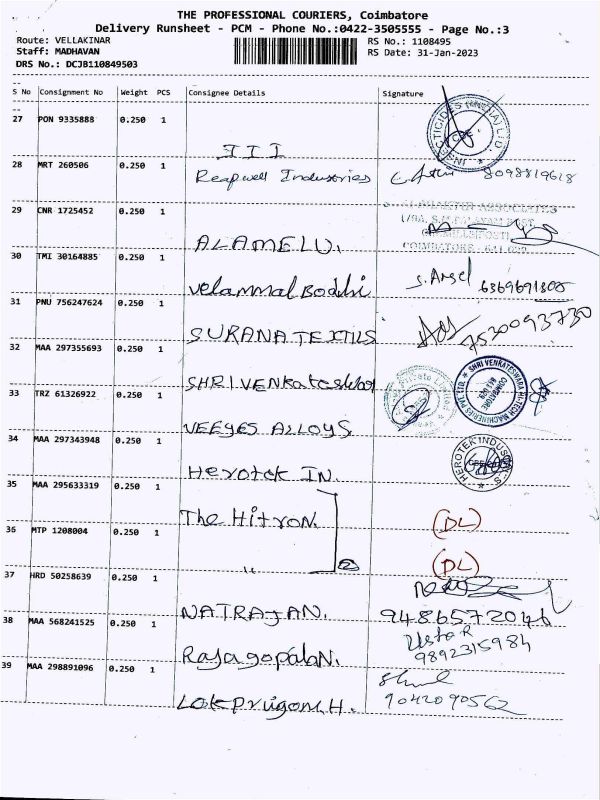 THE PROFESSIONAL COURIERS, Coimbatore
Delivery Runsheet - PCM - Phone No.:0422-3505555 - Page No.:3
Route: VELLAKINAR
RS No.: 1108495
Staff: MADHAVAN
RS Date: 31-Jan-2023
DRS No.: DCJB110849503
S No Consignment No Weight PCS Consignee Details Signature
27 PON 9335888 0.250 1
III
28 MRT 260506 0.250 1
Reapwell Industries 8098819618
29 CNR 1725452 0.250 1
ALAMELU.
COIMBATORE
30 TMI 30164885 0.250 1
Velammal Bodhi 6369691308
31 PNU 756247624 0.250 1
SURANA TEXTILS 7530093730
32 MAA 297355693 0.250 1
SHRI VENKateshwar
SHRI VENKATESWARA HI-TECH MACHINERIES PVT LTD
33 TRZ 61326922 0.250 1
VEEYES ALLOYS
34 MAA 297343948 0.250 1
Herotek IN.
HEROTEK INDUS
35 MAA 295633319 0.250 1
The HitroN.
(DL)
36 MTP 1208004 0.250 1
"
(DL)
37 HRD 50258639 0.250 1
NATRAJAN. 9486572046
38 MAA 568241525 0.250 1
RajagopalaN. 9892315984
39 MAA 298891096 0.250 1
9042090562